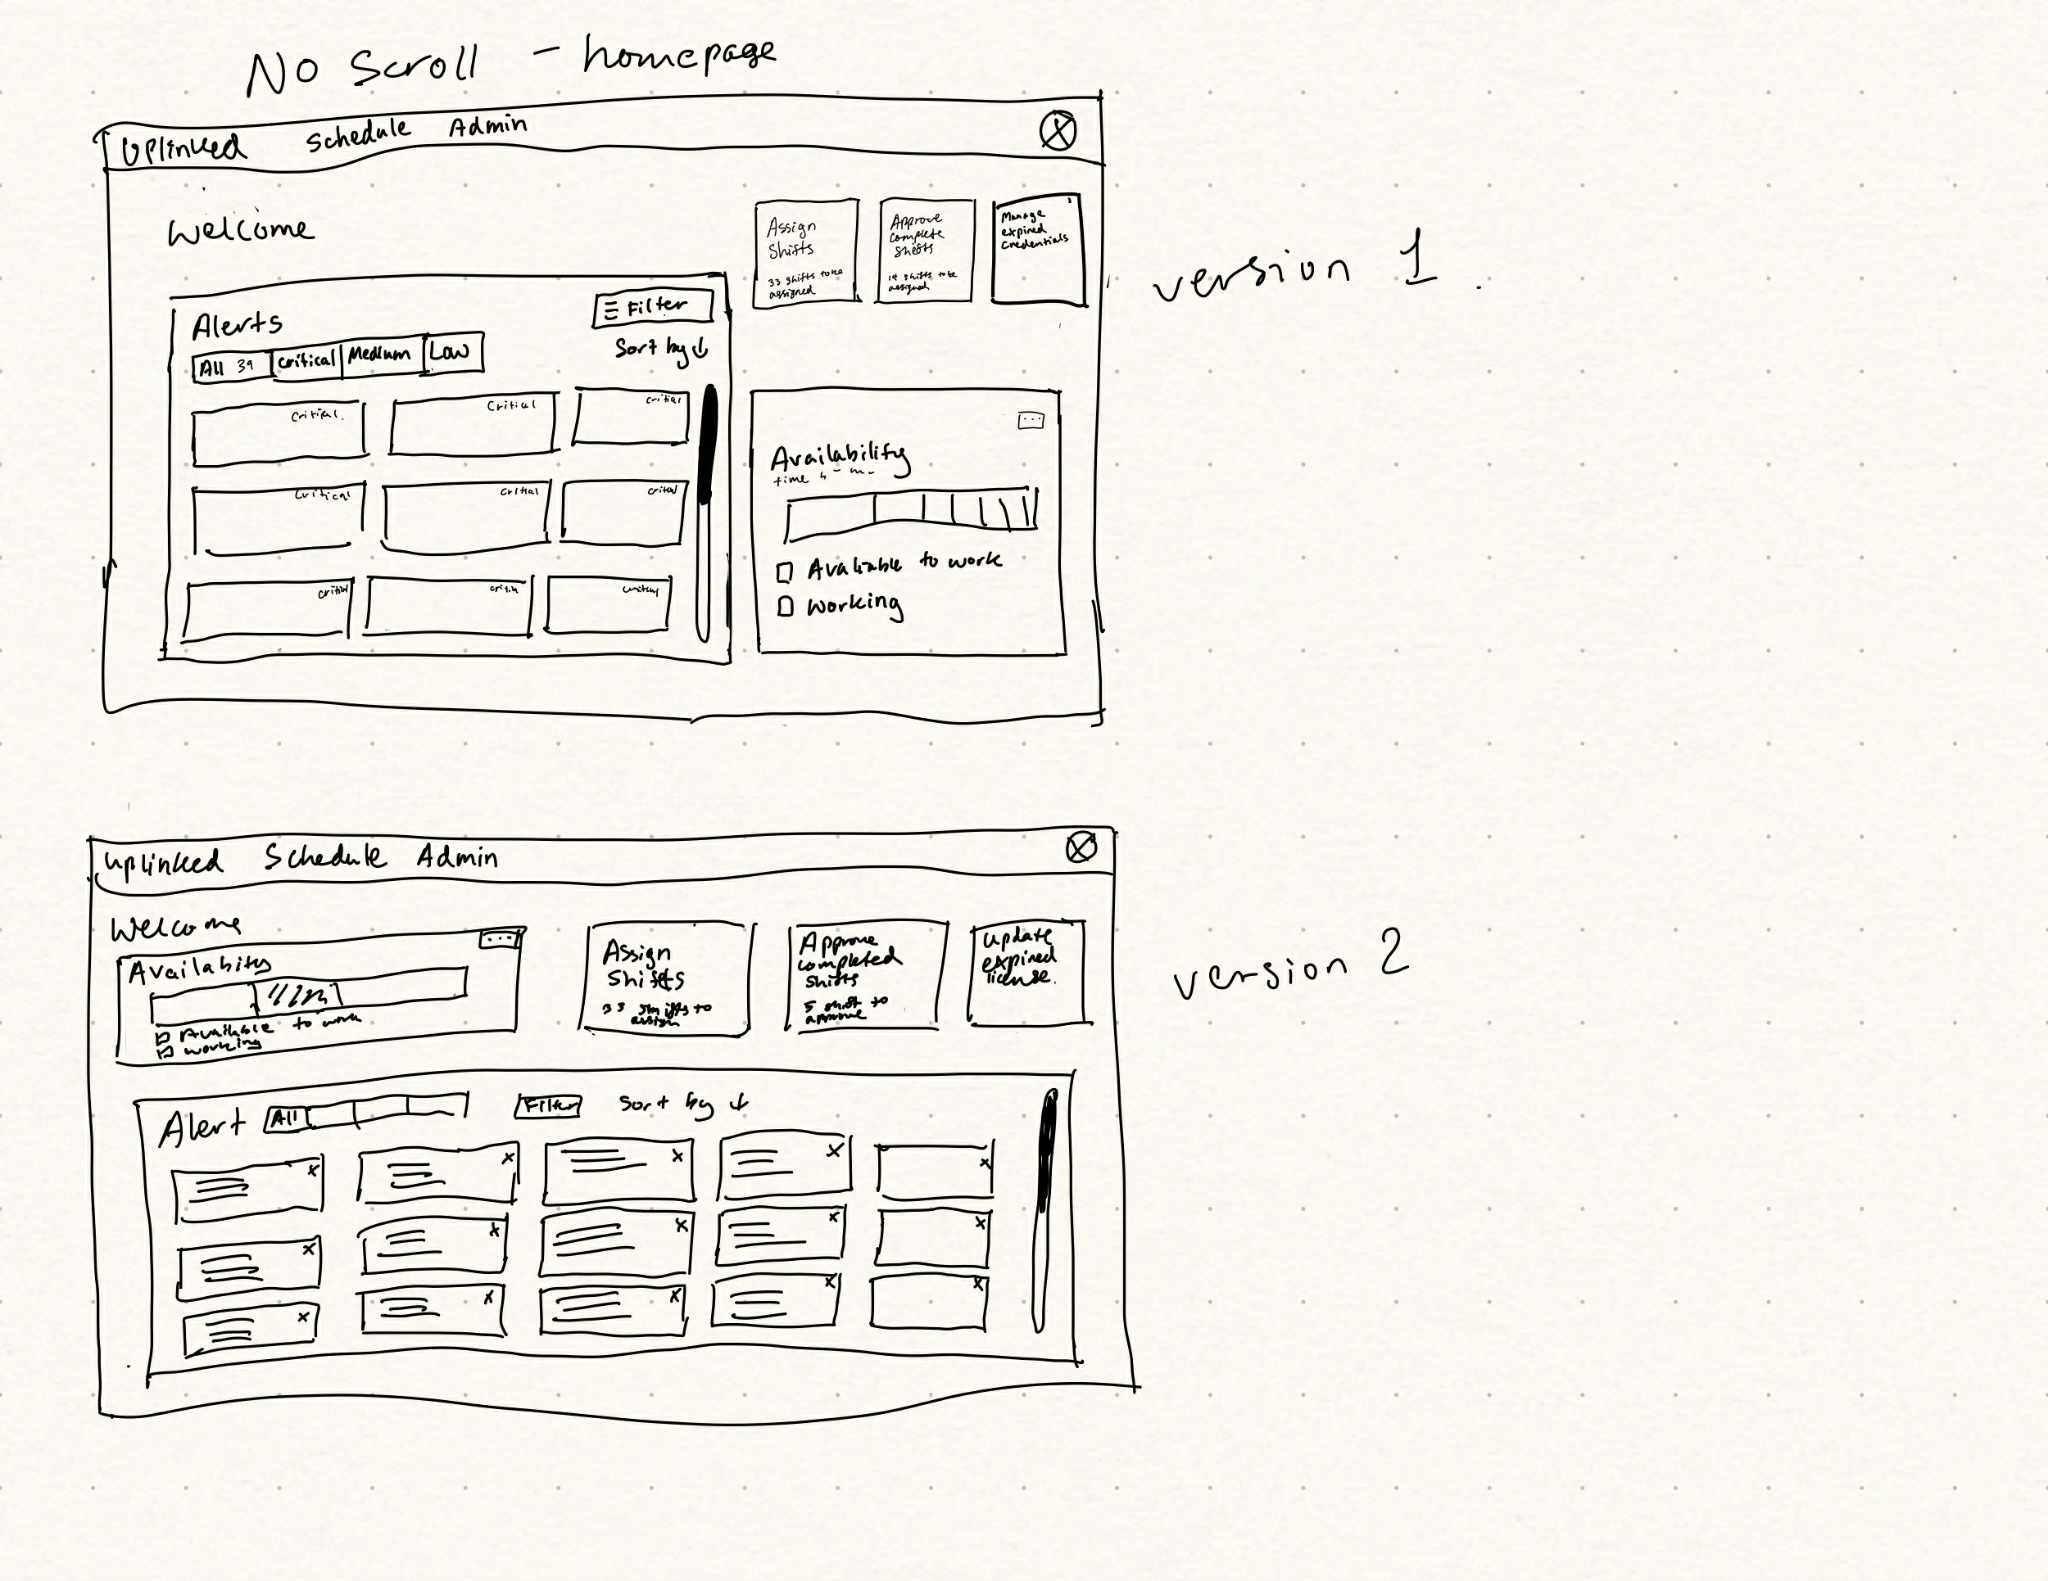 No Scroll - homepage
Uplinked Schedule Admin
Welcome
Assign
Shifts
33 shifts to be
assigned
Approve
complete
shifts
14 shifts to be
assigned
Manage
expired
credentials
version 1.
Alerts
Filter
Sort by ↓
All 39 critical Medium Low
Critical Critical Critical
Critical Critical Critical
Critical Critical Critical
Availability
time
Avaliable to work
Working
Uplinked Schedule Admin
Welcome
Availabity
Available to work
working
Assign
Shifts
33 shifts to
assign
Approve
completed
shifts
5 shift to
approve
update
expired
license.
version 2
Alert All Filter Sort by ↓